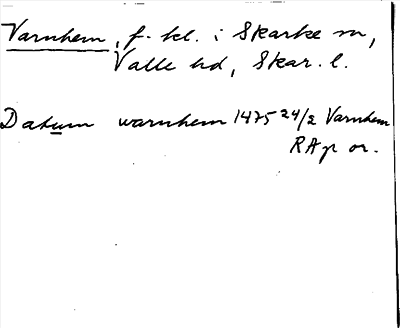 Varnhem, f. kl. i Skarke sn,
Valle hd, Skar. l.
Datum warnhem 1475 24/2 Varnhem
RAp or.